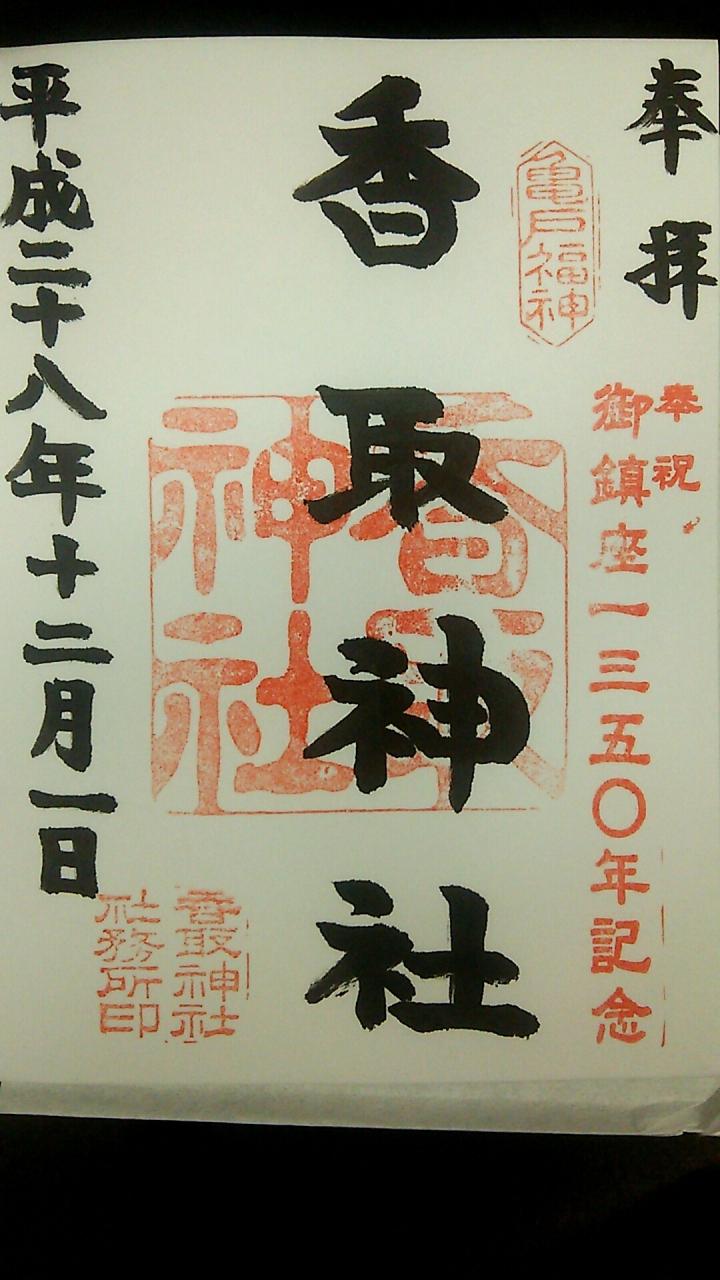 奉拝
奉祝
御鎮座一三五〇年記念
亀戸福神
香取神社
香取神社
香取神社
社務所印
平成二十八年十二月一日